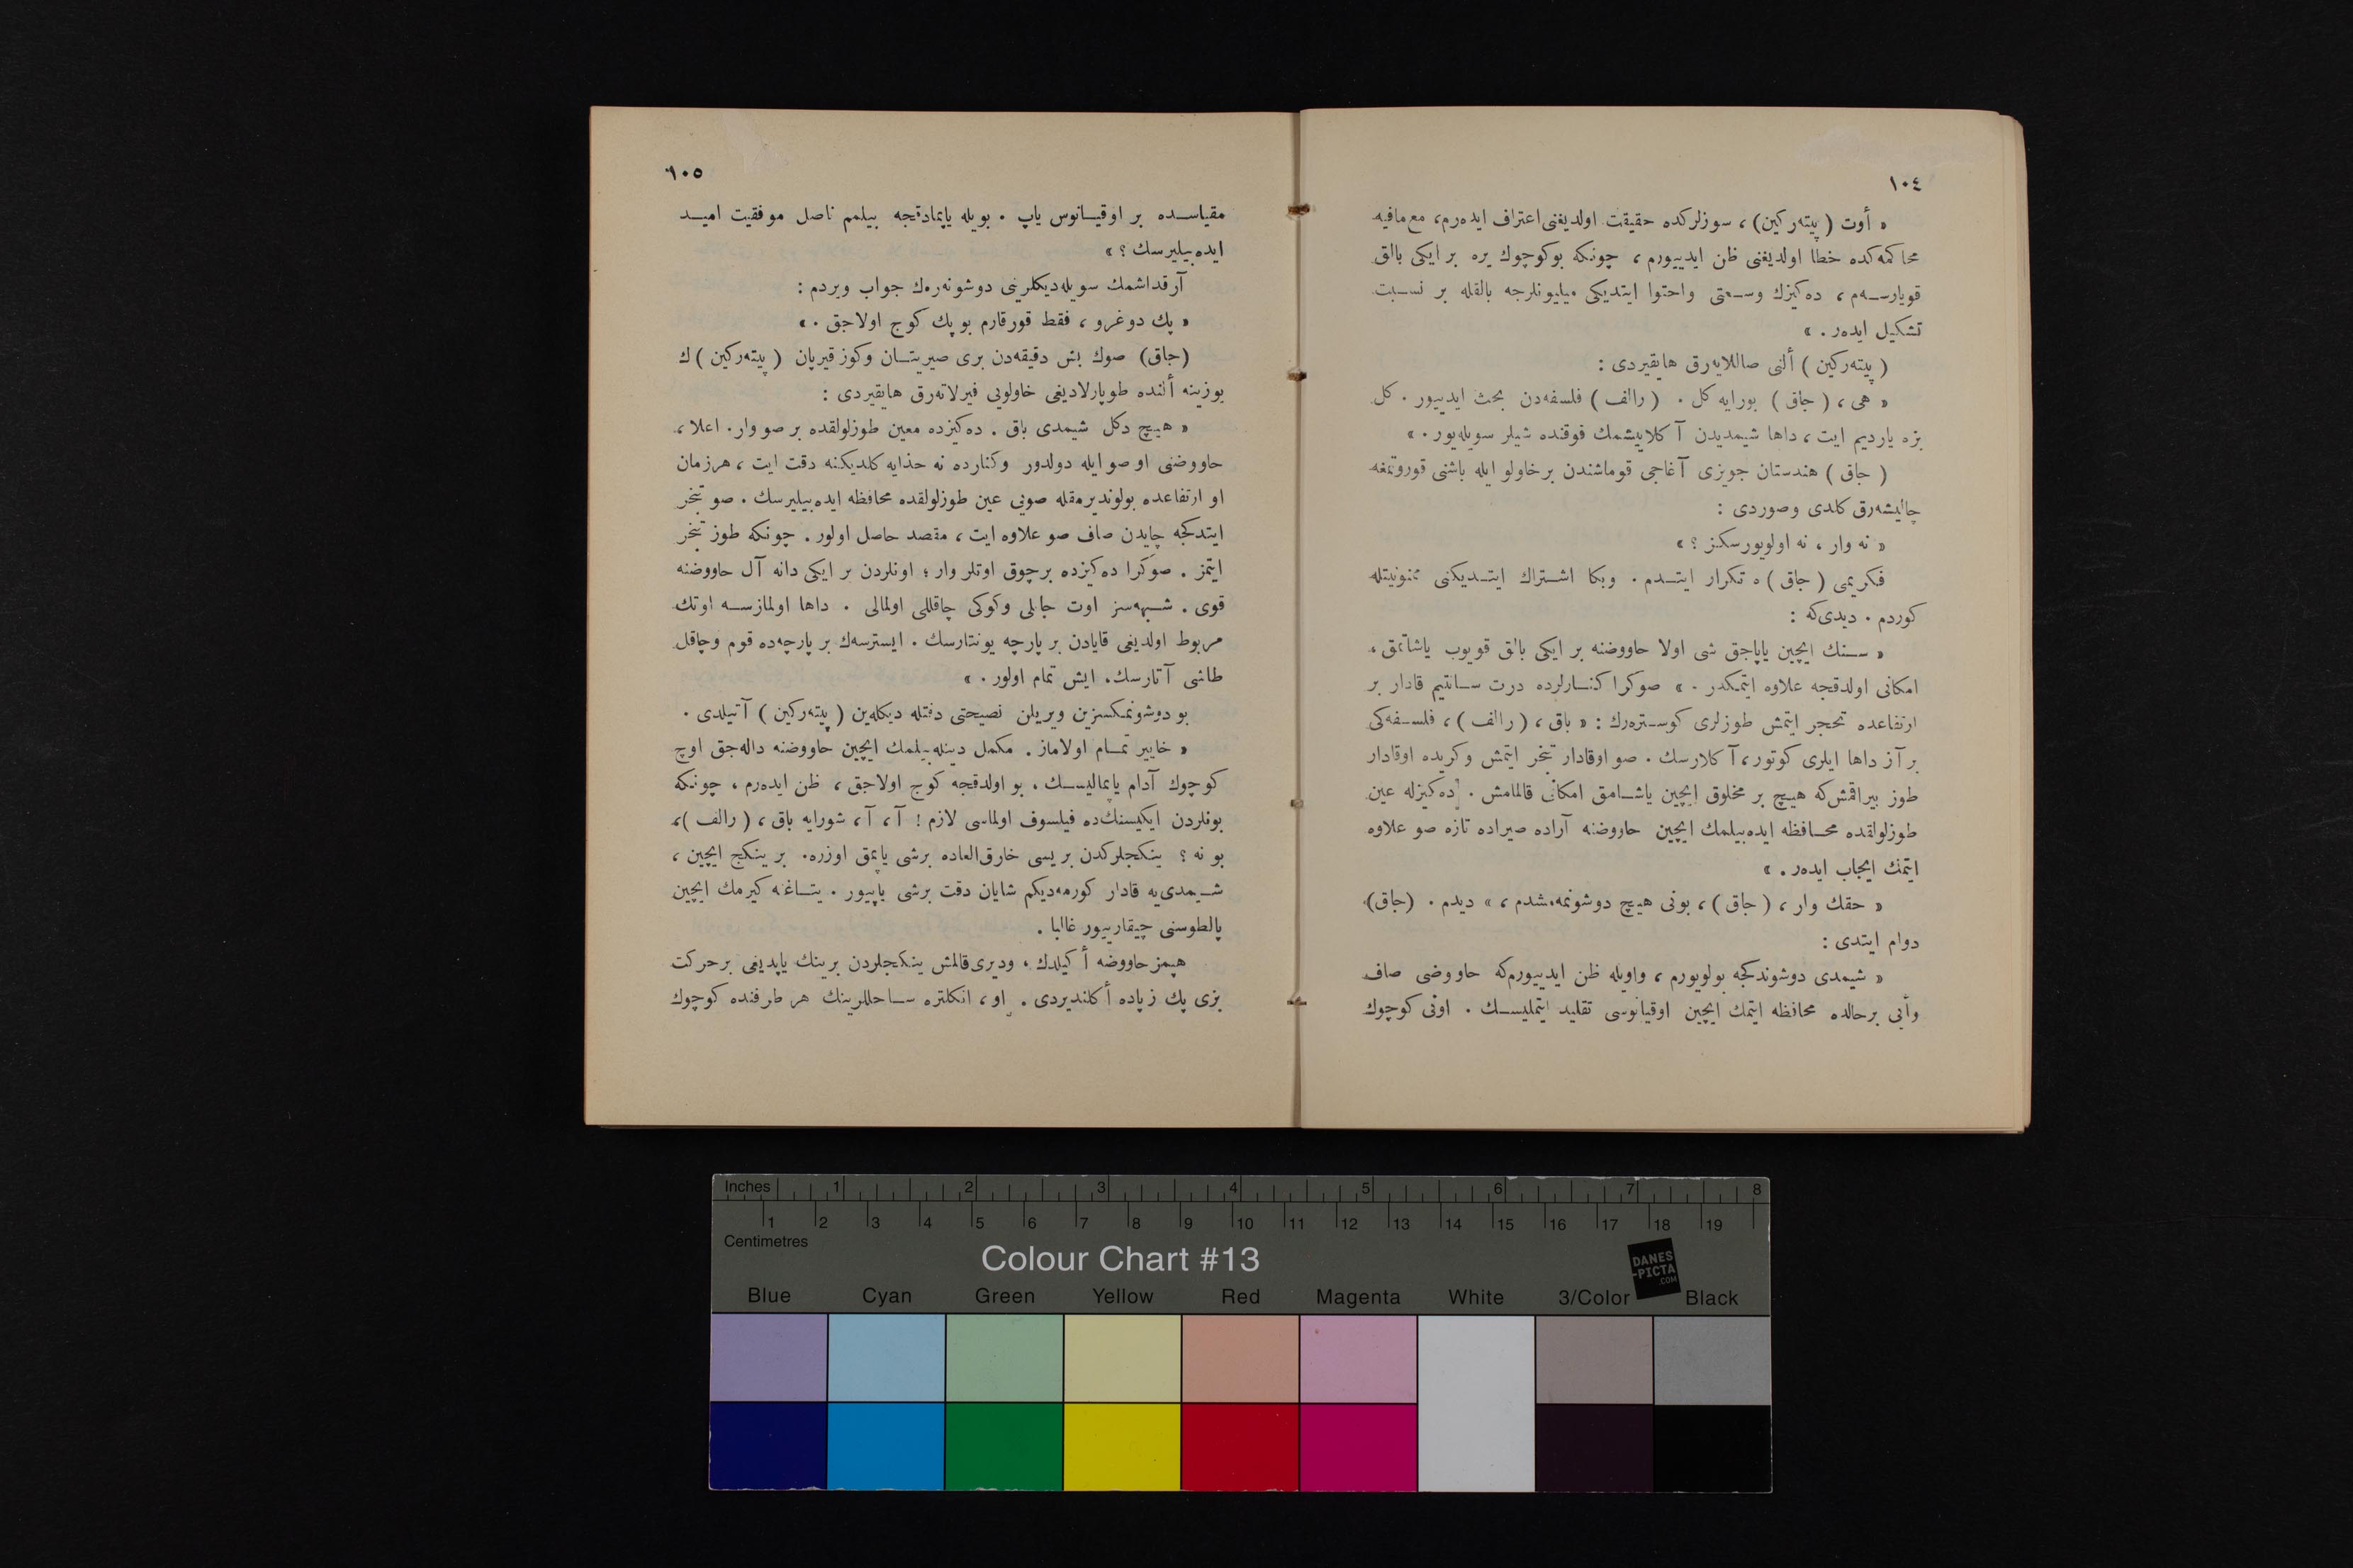 ١٠٤
« أوت (پیته‌رکین) ، سوزلرکده حقیقت اولدیغنی اعتراف ایده‌رم، مع‌مافیه
محاکمه‌کده خطا اولدیغنی ظن ایدییورم ، چونکه بوکوچوك یره بر ایکی بالق
قویارسه‌م ، ده‌کیزك وسعتی واحتوا ایتدیکی میلیونلرجه بالقله بر نسبت
تشکیل ایده‌ر . »
( پیته‌رکین ) ألنی صاللایه‌رق هایقیردی :
« هی ، ( جاق ) بورایه کل . ( رالف ) فلسفه‌دن بحث ایدییور . کل
بزه یاردیم ایت ، داها شیمدیدن آکلاییشمك فوقنده شیلر سویله‌یور . »
( جاق ) هندستان جویزی آغاجی قوماشندن بر خاولو ایله باشنی قوروتمغه
چالیشه‌رق کلدی وصوردی :
« نه وار ، نه اولویورسکز ؟ »
فکریمی ( جاق ) ه تکرار ایتدم . وبکا اشتراك ایتدیکنی ممنونیتله
کوردم . دیدی‌که :
« سنك ایچین یاپاجق شی اولا حاووضنه بر ایکی بالق قویوب یاشاتمق ،
امکانی اولدقجه علاوه ایتمکدر . » صوکرا کنارلرده درت سانتیم قادار بر
ارتفاعده تحجر ایتمش طوزلری کوستره‌رك : « باق ، ( رالف ) ، فلسفه‌کی
بر آز داها ایلری کوتور ، آکلارسك . صو اوقادار تبخر ایتمش وکریده اوقادار
طوز بیراقمش‌که هیچ بر مخلوق ایچین یاشامق امکانی قالمامش . ده‌کیزله عین
طوزلولقده محافظه ایده‌بیلمك ایچین حاووضنه آراده صیراده تازه صو علاوه
ایتمك ایجاب ایده‌ر . »
« حقك وار ، ( جاق ) ، بونی هیچ دوشونمه‌مشدم ، » دیدم . (جاق)
دوام ایتدی :
« شیمدی دوشوندکجه بولویورم ، واویله ظن ایدییورم‌که حاووضی صاف
وأیی برحالده محافظه ایتمك ایچین اوقیانوسی تقلید ایتملیسك . اونی کوچوك
١٠٥
مقیاسده بر اوقیانوس یاپ . بویله یاپمادقجه بیلمم ناصل موفقیت امید
ایده‌بیلیرسك ؟ »
آرقداشمك سویله‌دیکلرینی دوشونه‌ره‌ك جواب ویردم :
« پك دوغرو ، فقط قورقارم بو پك کوج اولاجق . »
(جاق) صوك بش دقیقه‌دن بری صیریتان وکوز قیرپان ( پیته‌رکین ) ك
یوزینه ألنده طوپارلادیغی خاولویی فیرلاته‌رق هایقیردی :
« هیچ دکل شیمدی باق . ده‌کیزده معین طوزلولقده بر صو وار . اعلا ،
حاووضنی او صو ایله دولدور وکنارده نه حذایه کلدیکنه دقت ایت ، هرزمان
او ارتفاعده بولوندیرمقله صویی عین طوزلولقده محافظه ایده‌بیلیرسك . صو تبخر
ایتدکجه چایدن صاف صو علاوه ایت ، مقصد حاصل اولور . چونکه طوز تبخر
ایتمز . صوکرا ده‌کیزده برچوق اوتلر وار ؛ اونلردن بر ایکی دانه آل حاووضنه
قوی . شبهه‌سز اوت جانلی وکوکی چاقللی اولمالی . داها اولمازسه اوتك
مربوط اولدیغی قایادن بر پارچه یونتارسك . ایسترسه‌ك بر پارچه‌ده قوم وچاقل
طاشی آتارسك . ایش تمام اولور . »
بو دوشونمکسزین ویریلن نصیحتی دقتله دیکله‌ین ( پیته‌رکین ) آتیلدی .
« خاییر تمام اولاماز . مکمل دینله‌بیلمك ایچین حاووضنه داله‌جق اوچ
کوچوك آدام یاپمالیسك . بو اولدقجه کوج اولاجق ، ظن ایده‌رم ، چونکه
بونلردن ایکیسنك‌ده فیلسوف اولماسی لازم ! آ ، آ ، شورایه باق ، ( رالف ) ،
بو نه ؟ ینکجلرکدن بریسی خارق‌العاده برشی یاپمق اوزره . بر ینکج ایچین ،
شیمدی‌یه قادار کورمه‌دیکم شایان دقت برشی یاپییور . یتاغنه کیرمك ایچین
پالطوسنی چیقارییور غالبا .
هپمز حاووضه أکیلدك ، ودیری‌قالمش ینکجلردن برینك یاپدیغی برحرکت
بزی پك زیاده أکلندیردی . او ، انکلتره ساحللرینك هر طرفنده کوچوك
Inches 1 2 3 4 5 6 7 8
1 2 3 4 5 6 7 8 9 10 11 12 13 14 15 16 17 18 19
Centimetres
Colour Chart #13
DANES
-PICTA
.COM
Blue Cyan Green Yellow Red Magenta White 3/Color Black